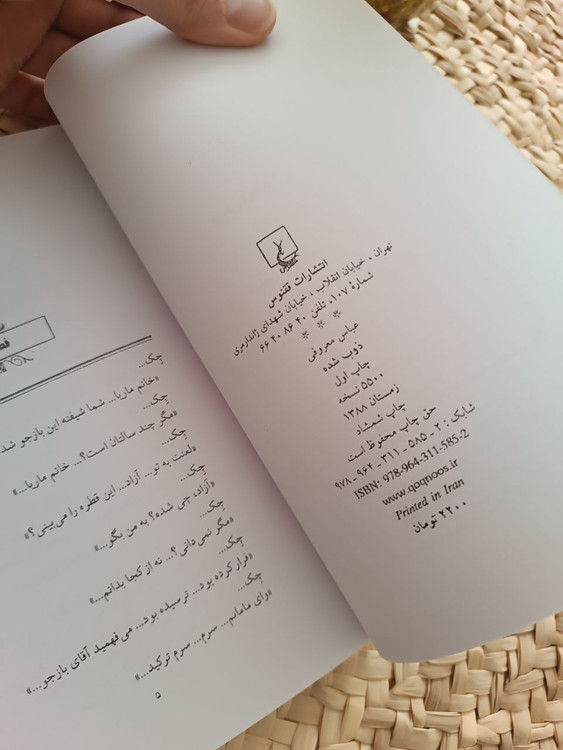 انتشارات ققنوس
تهران، خیابان انقلاب، خیابان شهدای ژاندارمری
شمارهٔ ۱۰۷، تلفن ۴۰ ۸۶ ۴۰ ۶۶
* * *
عباس معروفی
ذوب شده
چاپ اول
۵۵۰۰ نسخه
زمستان ۱۳۸۸
چاپ شمشاد
حق چاپ محفوظ است
شابک: ۲ - ۵۸۵ - ۳۱۱ - ۹۶۴ - ۹۷۸
ISBN: 978-964-311-585-2
www.qoqnoos.ir
Printed in Iran
۲۲۰۰ تومان
چِک...
«خانم ماریا... شما شیفته این بازجو شد
چِک...
«مگر چند سالتان است؟... خانم ماریا...»
چِک...
«لعنت به تو... آزاد... این قطره را می‌بینی؟»
چِک...
«آزاده چی شده؟ به من بگو...»
چِک...
«مگر نمی‌دانی؟... نه از کجا بدانم...»
چِک...
«فرار کرده بود... ترسیده بود... می‌فهمید آقای بازجو...»
چِک...
«وای مامانم... سرم... سرم ترکید...»
۵